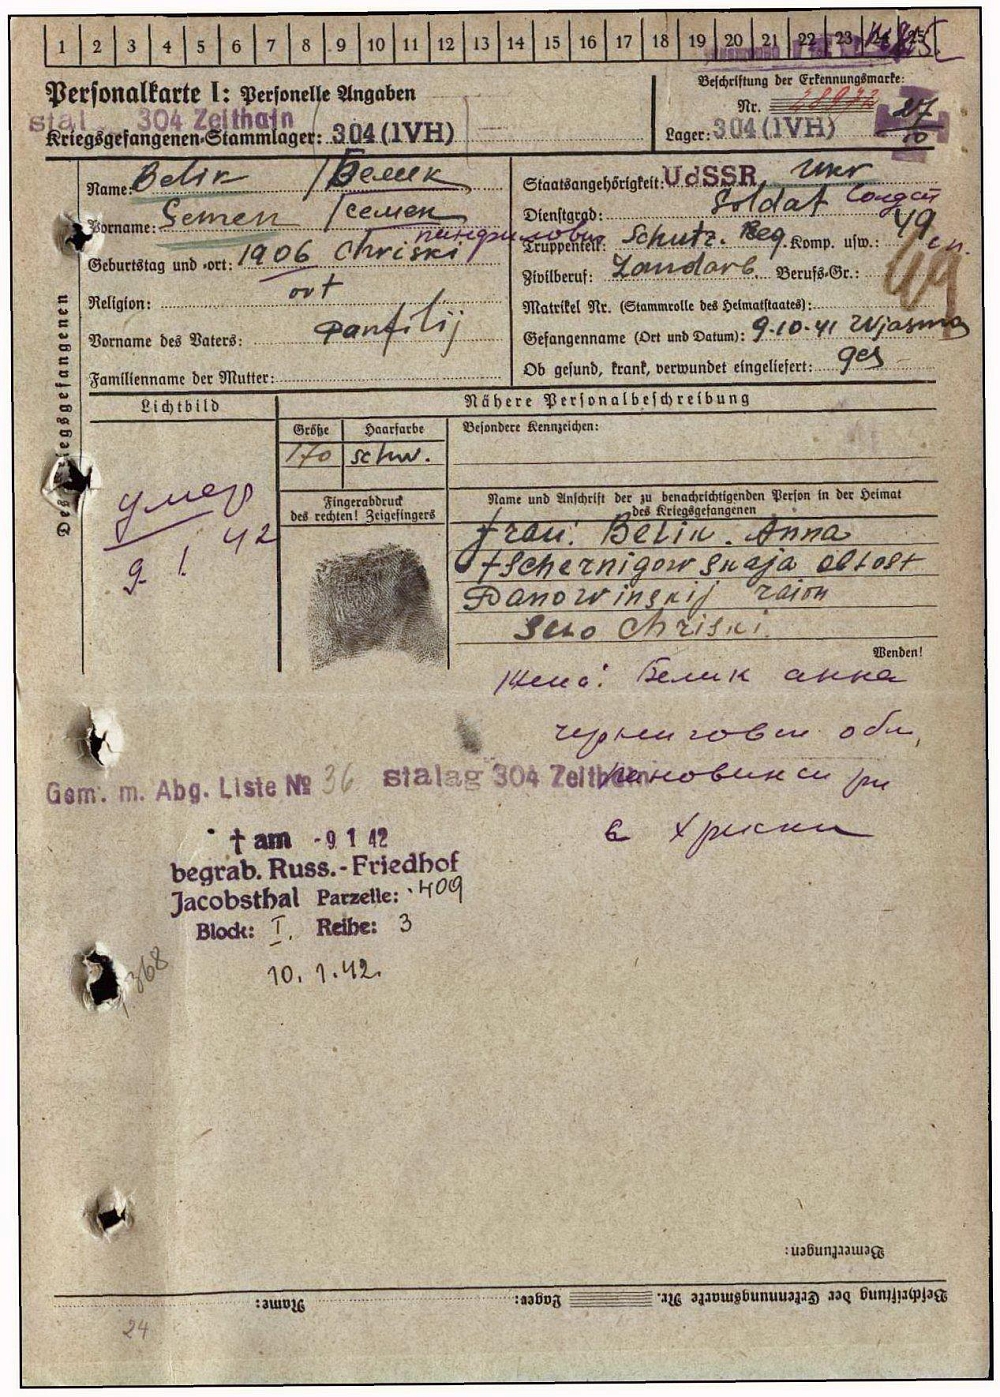 1 2 3 4 5 6 7 8 9 10 11 12 13 14 15 16 17 18 19 20 21 22 23 24 25
Personalkarte I: Personelle Angaben
Beschriftung der Erkennungsmarke:
Nr.
stal 304 Zeithain
Kriegsgefangenen-Stammlager: 304 (IVH)
Lager: 304 (IVH)
Des Kriegsgefangenen
Name: Belik / Белик
Vorname: Semen / Семен
панфилович
Geburtstag und -ort: 1906 Chriski
Religion: ort
Vorname des Vaters: Panfilij
Familienname der Mutter:
Staatsangehörigkeit: UdSSR Ukr
Dienstgrad: Soldat Солдат
Truppenteil: Schutz. Reg. Komp. usw.: 49
Zivilberuf: Landarb. Berufs-Gr.:
49
Matrikel Nr. (Stammrolle des Heimatstaates):
Gefangennahme (Ort und Datum): 9.10.41 Wjasma
Ob gesund, krank, verwundet eingeliefert: ges
Lichtbild
умер
9. 1. 42
Nähere Personalbeschreibung
Größe Haarfarbe
170 schw.
Besondere Kennzeichen:
Fingerabdruck
des rechten! Zeigefingers
Name und Anschrift der zu benachrichtigenden Person in der Heimat
des Kriegsgefangenen
Frau: Belik. Anna
Tschernigowskaja oblost
Panowinskij raion
Selo Chriski
Wenden!
Жена: Белик анна
черниговск обл,
с Хриски
Gem. m. Abg. Liste № 36
stalag 304 Zeithain
† am -9 1 42
begrab. Russ.-Friedhof
Jacobsthal Parzelle: 409
Block: I. Reihe: 3
10. 1. 42.
368
Bemerkungen:
Beschriftung der Erkennungsmarke Nr. Lager: Name:
24